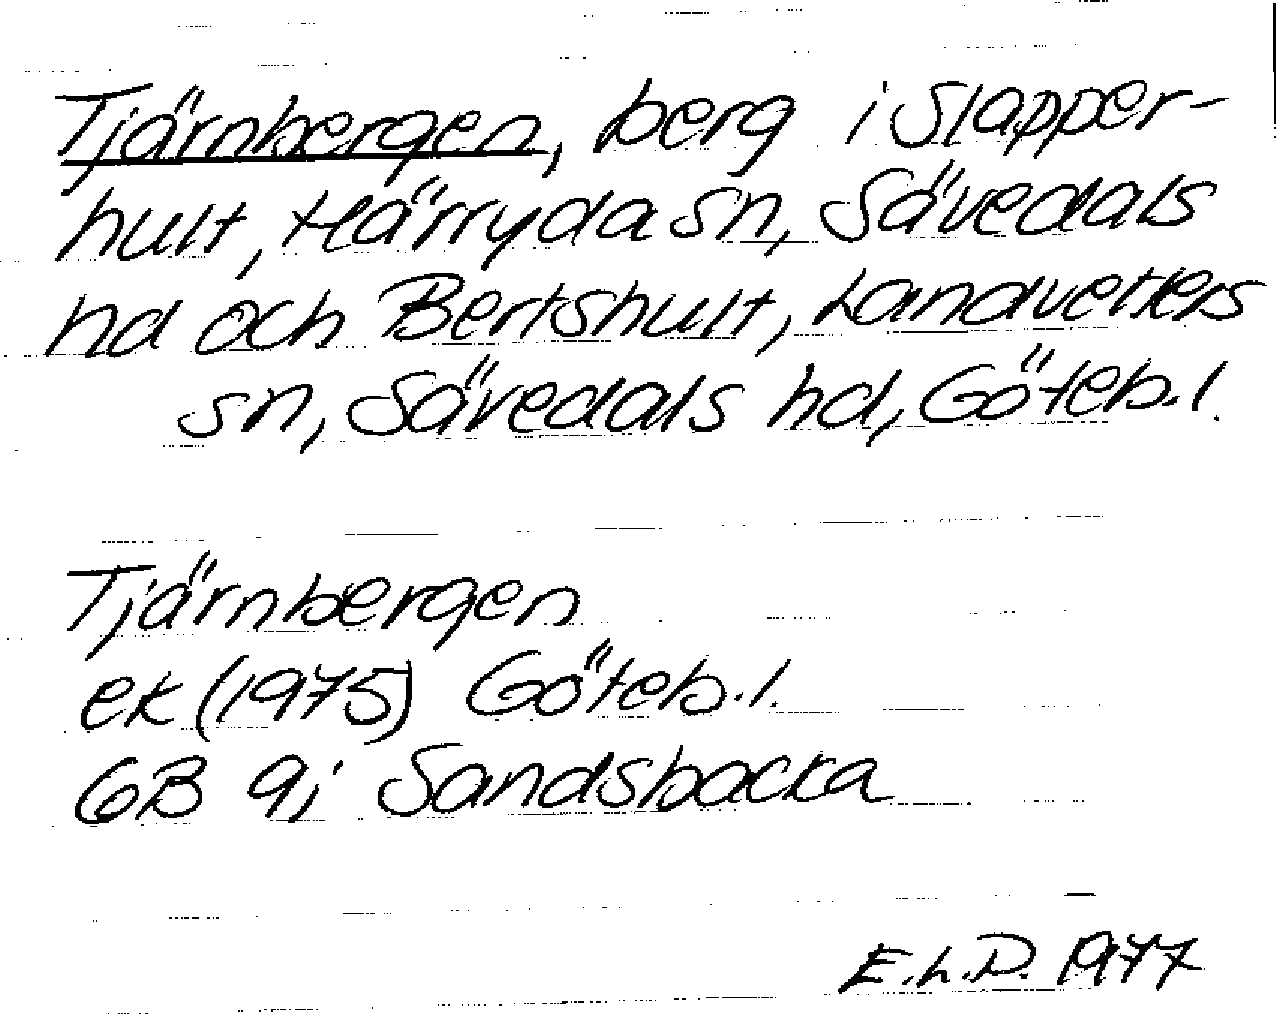 Tjärnbergen, berg i Slapper-
hult, Härryda sn, Sävedals
hd och Bertshult, Landvetters
sn, Sävedals hd, Göteb. l.
Tjärnbergen
ek (1975) Göteb. l.
6B 9j Sandsbacka
E.L.D. 1977